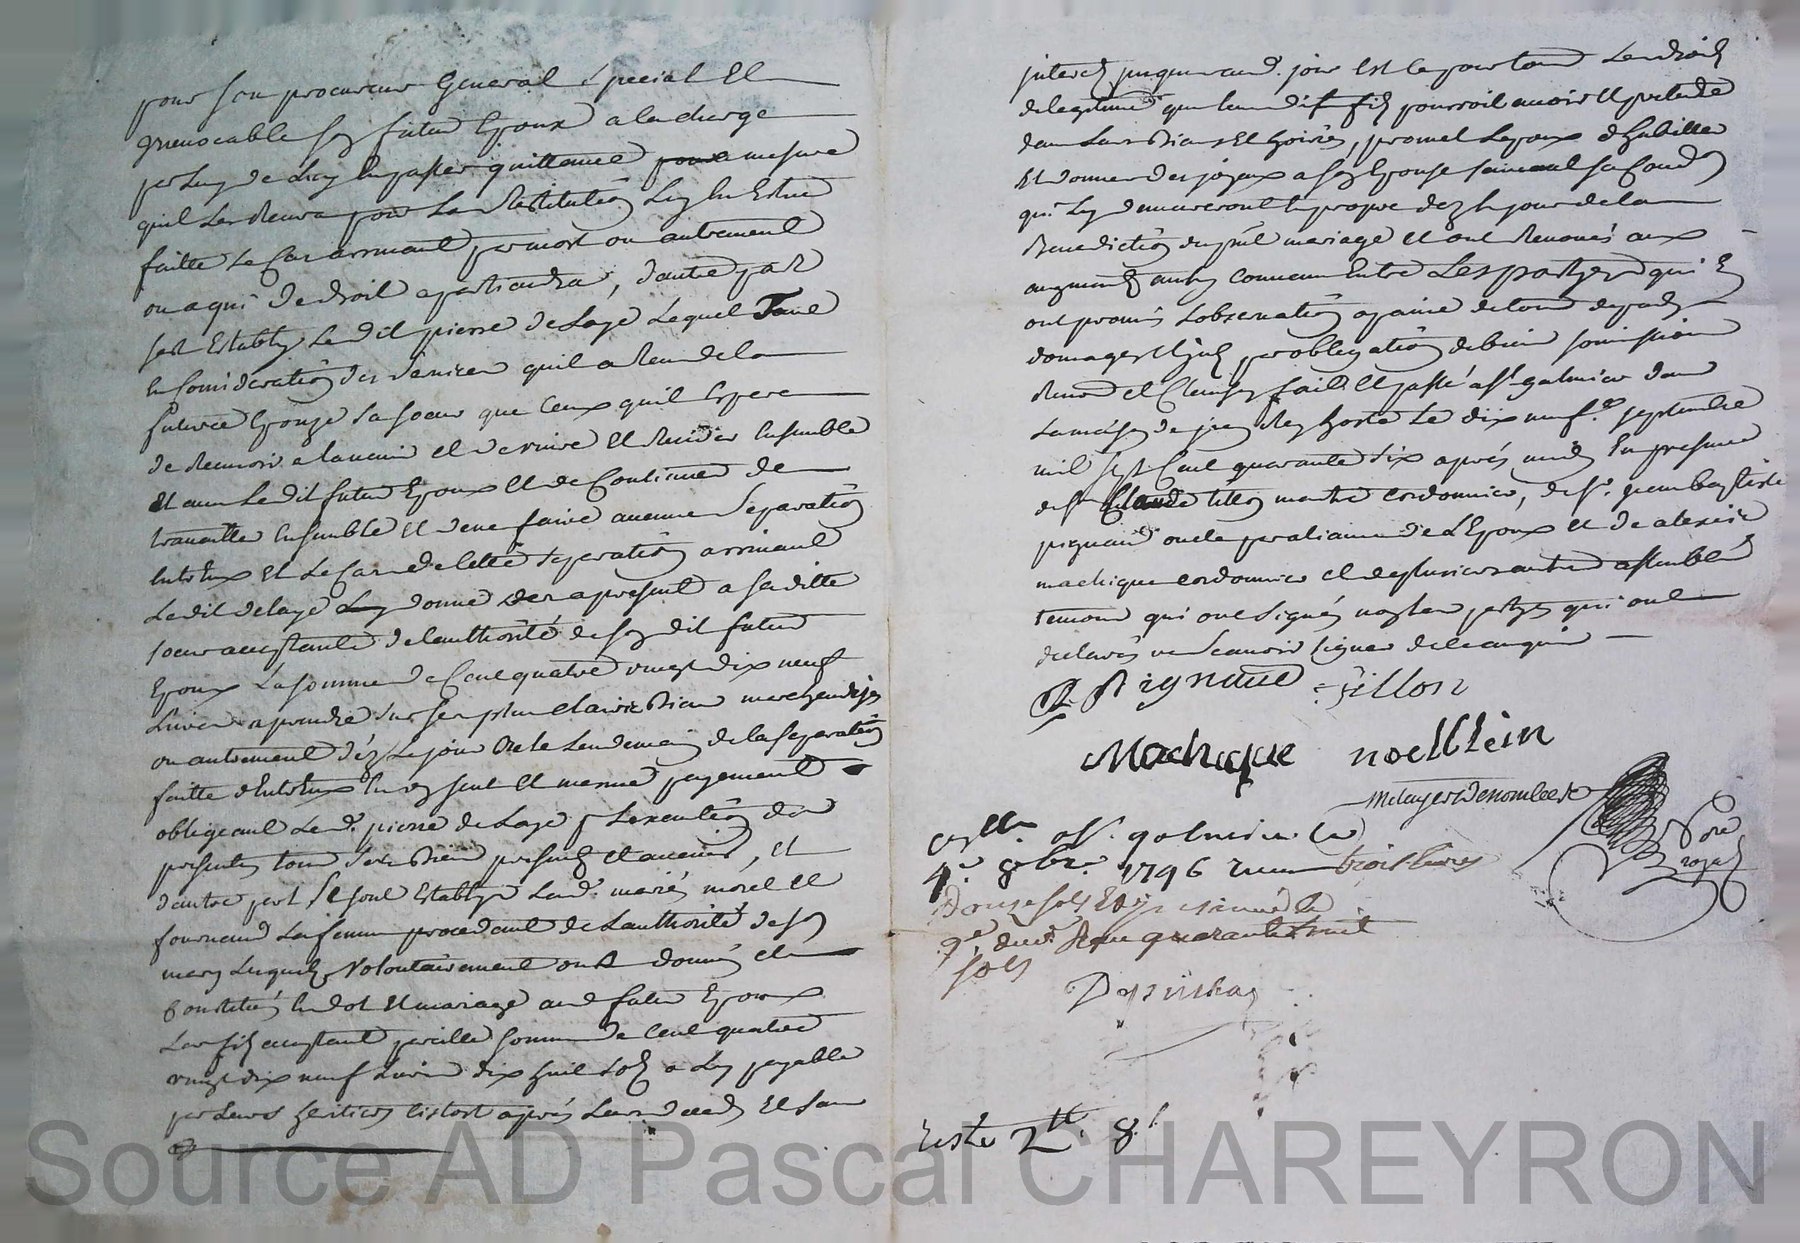 pour son procureur General special Et
Irrevocable son futur Epoux a la charge
par luy de luy en passer quittance a mesure
quil les Recevra pour la Restitution luy en Estre
faitte le Cas arrivant par mort ou autrement
ou a qui de droit apartiendra, d'autre part
sest Estably ledit pierre delage lequel Tant
En Consideration des services quil a Reçu de la
future Epouze sa soeur que Ceux quil Espere
de Recevoir a lavenir et de vivre Et Resider Ensemble
Et avec ledit futur Epoux Et de Continuer de
travailler Ensemble Et de ne faire aucune separation
Entr'Eux Et le Cas de cette separation arrivant
ledit delage donne des a present a saditte
soeur acceptante de lauthorité de son dit futur
Epoux la somme de Cent quatre vingt dix neuf
Livres a prendre sur ses plus clairs Biens marchandises
ou autrement dez le jour Ou le lendemain de la separation
faitte d'Entr'Eux En un seul Et mesme payement
obligeant led. pierre delage p. lexecution des
presentes tous ses Biens presents Et avenir, Et
d'autre part se sont Establys lesd. mariés morel Et
fournand sa femme procedant de Lauthorité de son
mary lesquels Volontairement ont donné et
Constitué En dot Et mariage aud. futur Epoux
leur fils acceptant pareille somme de Cent quatre
vingt dix neuf Livres dix huit sols a luy payable
par leurs heritiers tistost après leurs deceds Et sans
interest jusques aud. jour Est Ce pour tous les droits
de legitime que leurdit fils pourroit avoir Et pretendre
dans leurs Biens Et hoiries, promet Lepoux d'habiller
Et donner des joyaux a son Epouse suivant sa Condon
qui luy demeureront En propre dez le jour de la
Benediction du pnt mariage Et ont Renoncés aux
augments ainsy Convenu Entre Les partyes qui En
ont promis Lobservation a peine de tous depens
domages Et Ints par obligation de biens soumission
Renon et Clauses fait Et passé a St galmier dans
la maison de jean Rey hoste le dix neufe septembre
mil sept Cent quarante six après midy En presence
de sr Claude tillon maitre cordonnier, de sr. jean baptiste
pignaud oncle de LEpoux Et de alexis
machique cordonnier et de plusieurs autres assemblés
temoins qui ont signés non les partyes qui ont
declarés ne scavoir signer de ce enquis
Pignaud Fillon
Machique noel Klein
Mclayer Denombeede
Nore royal
a St. galmier le
4e 8bre 1746 Reçu trois livres
Douze sols
9e quarante huit
sols
Reste 2tt 8s
Source AD Pascal CHAREYRON